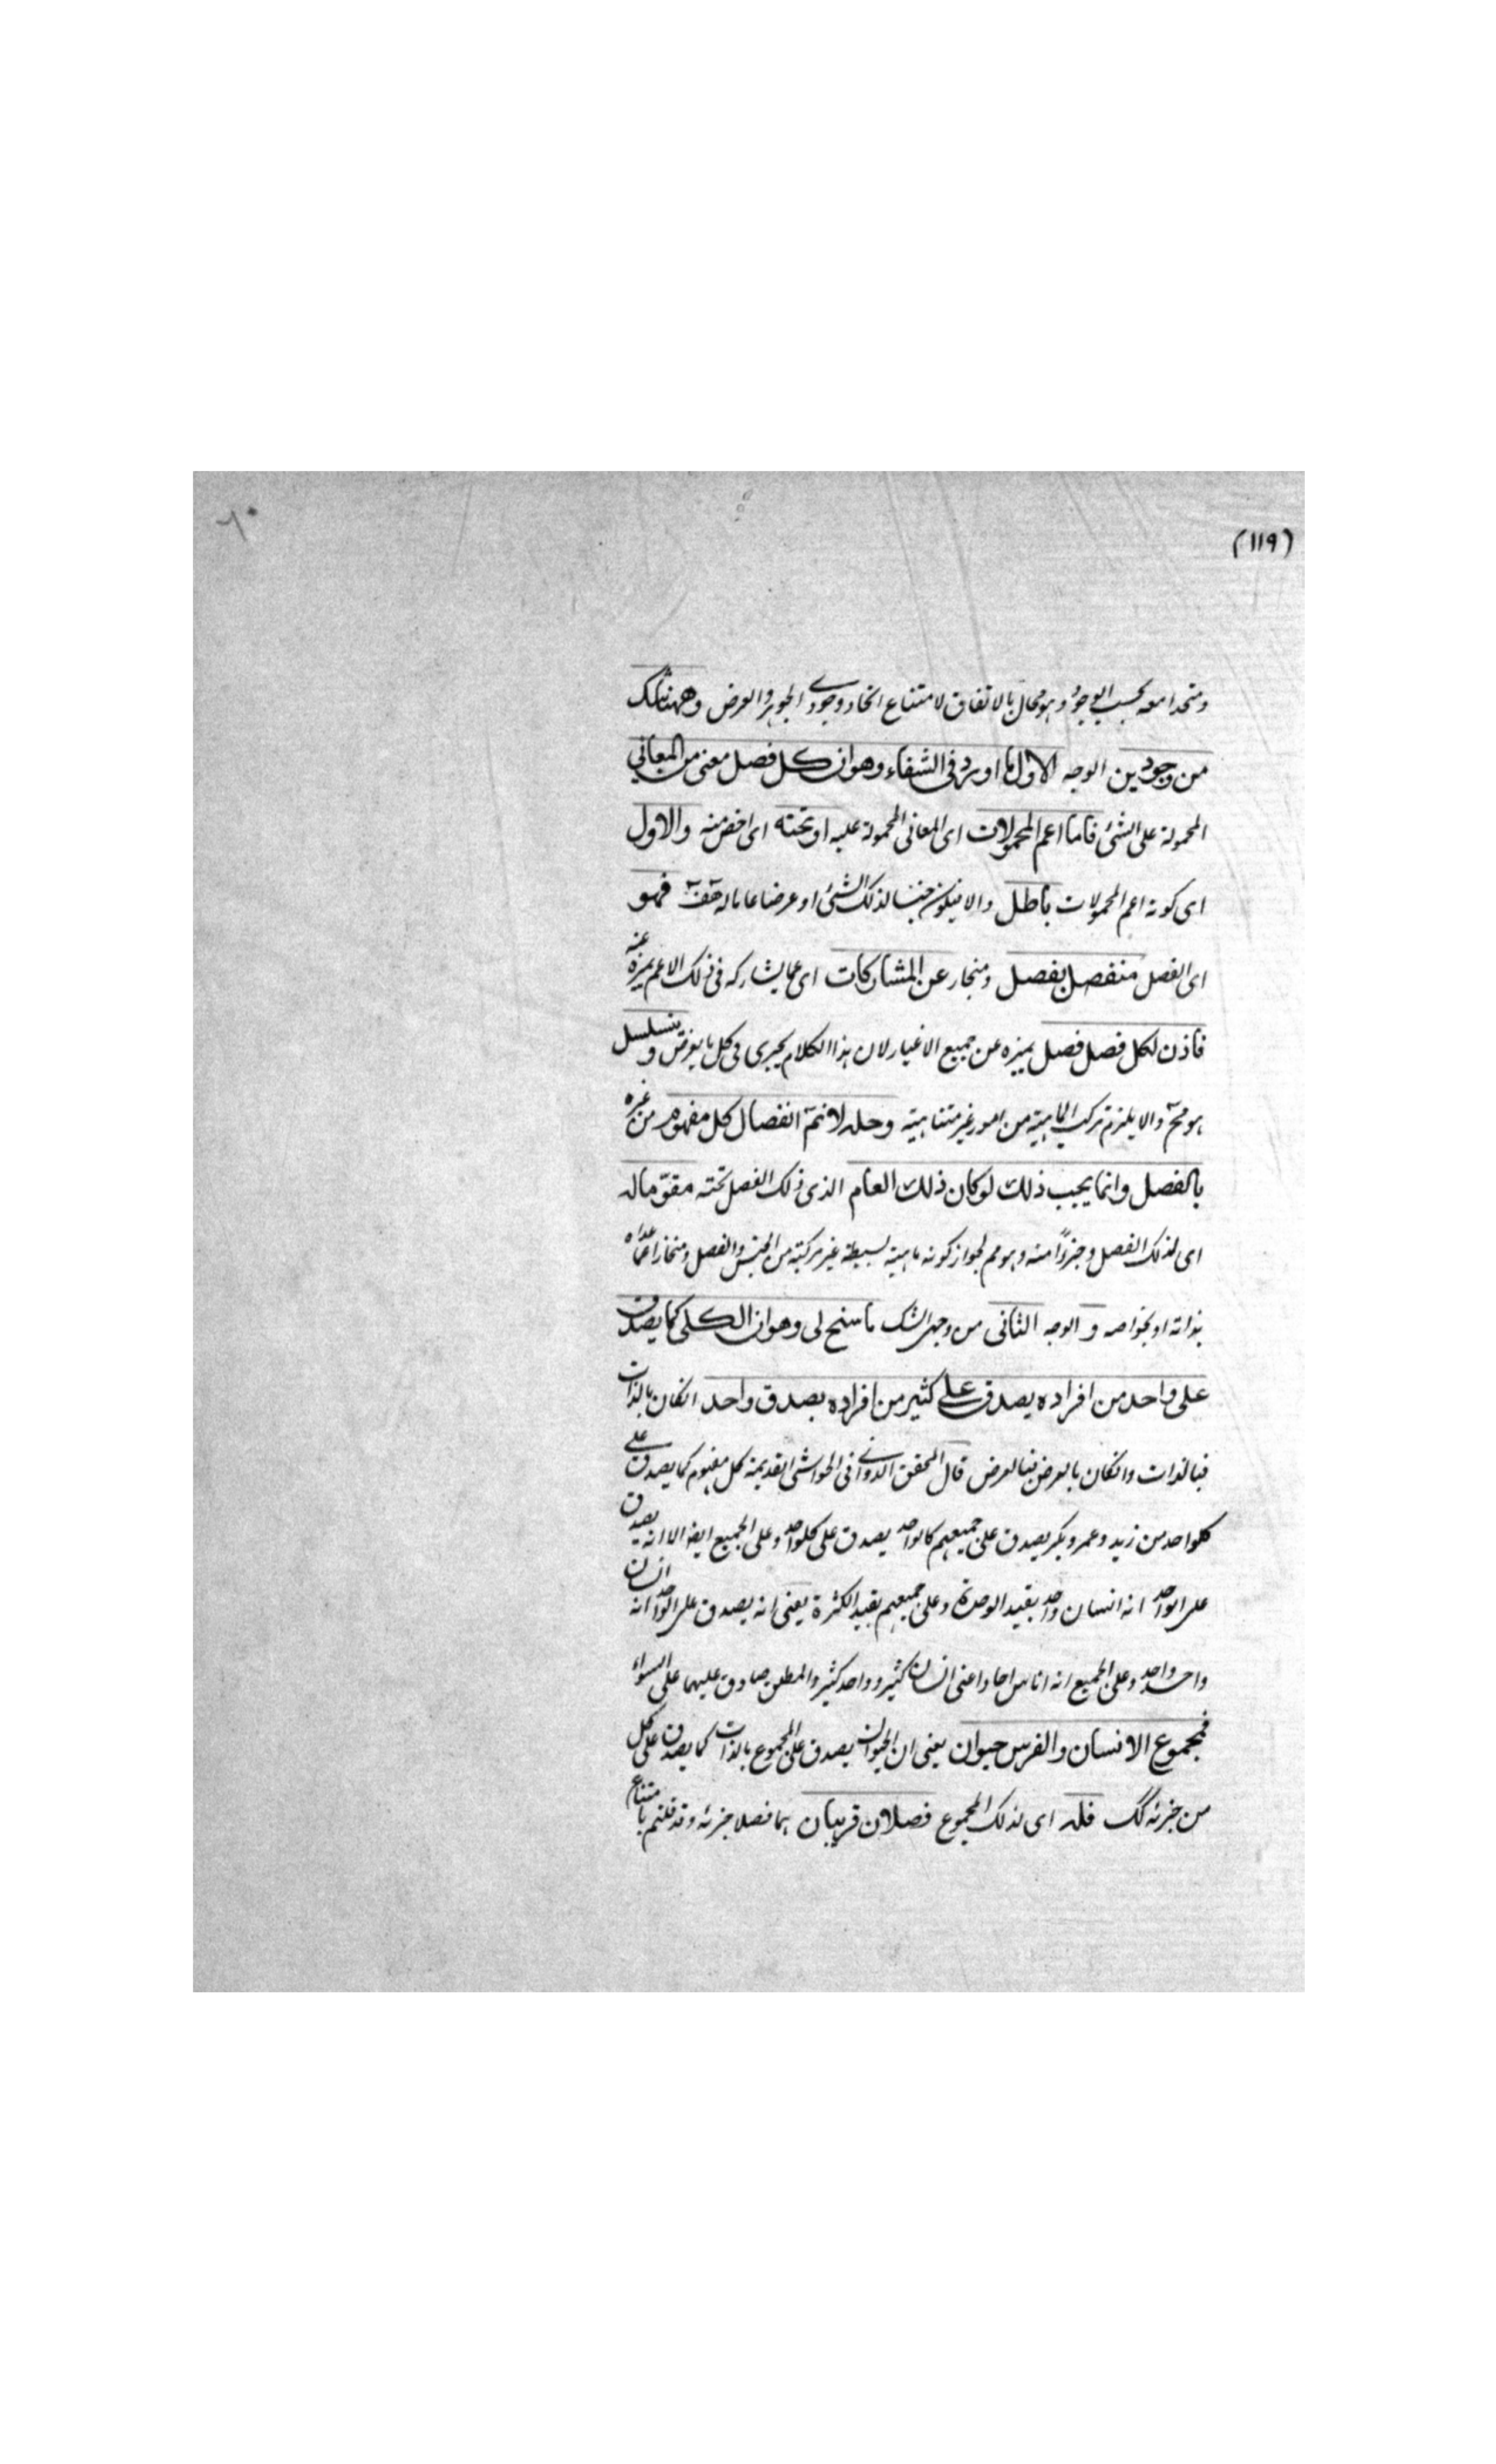 (١١٩)
٦٠
ومتحدا معه بحسب الوجود وهو محال بالاتفاق لامتناع اتحاد وجودي الجوهر والعرض وههنا شك
من وجهين الوجه الاول ما اورد في الشفاء وهو ان كل فصل معنى من المعاني
المحمولة على الشئ فاما اعم المحمولات اى المعانى المحمولة عليه او تحته اى اخص منه والاول
اى كونه اعم المحمولات باطل والا فيكون جنسا لذلك الشئ او عرضا عاما له هف فهو
اى الفصل منفصل بفصل ومنحاز عن المشاركات اى عما يشاركه فى ذلك الاعم يميزه عنه
فاذن لكل فصل فصل يميزه عن جميع الاغيار لان هذا الكلام يجرى فى كل ما يفرض ويتسلسل
هو مح والا يلزم تركب الماهية من امور غير متناهية وحله لا نم انفصال كل مفهوم من غيره
بالفصل وانما يجب ذلك لو كان ذلك العام الذى ذلك الفصل تحته مقوما له
اى لذلك الفصل وجزوا منه وهو مم لجواز كونه ماهية بسيطة غير مركبة من الجنس والفصل ومنحازا عما عداه
بذاته او بخواصه و الوجه الثانى من وجهى الشك ما سنح لى وهو ان الكلى كما يصدق
على واحد من افراده يصدق على كثير من افراده بصدق واحد انكان بالذات
فبالذات وانكان بالعرض فبالعرض قال المحقق الدوانى فى الحواشى القديمة كل مفهوم كما يصدق على
كلواحد من زيد وعمرو وبكر يصدق على جميعهم كالواحد يصدق على كلواحد وعلى الجميع ايضا الا انه يصدق
على الواحد انه انسان واحد بقيد الوحدة وعلى جميعهم بقيد الكثرة يعنى انه يصدق على الواحد انه انسان
واحد واحد وعلى الجميع انه اناس احاد اعنى انسان كثير وواحد كثير والمطلق صادق عليهما على السواء
فمجموع الانسان والفرس حيوان يعنى ان الحيوان يصدق على المجموع بالذات كما يصدق على كل
من جزئه كك فله اى لذلك المجموع فصلان قريبان هما فصلا جزئه وقد قلتم بامتناع